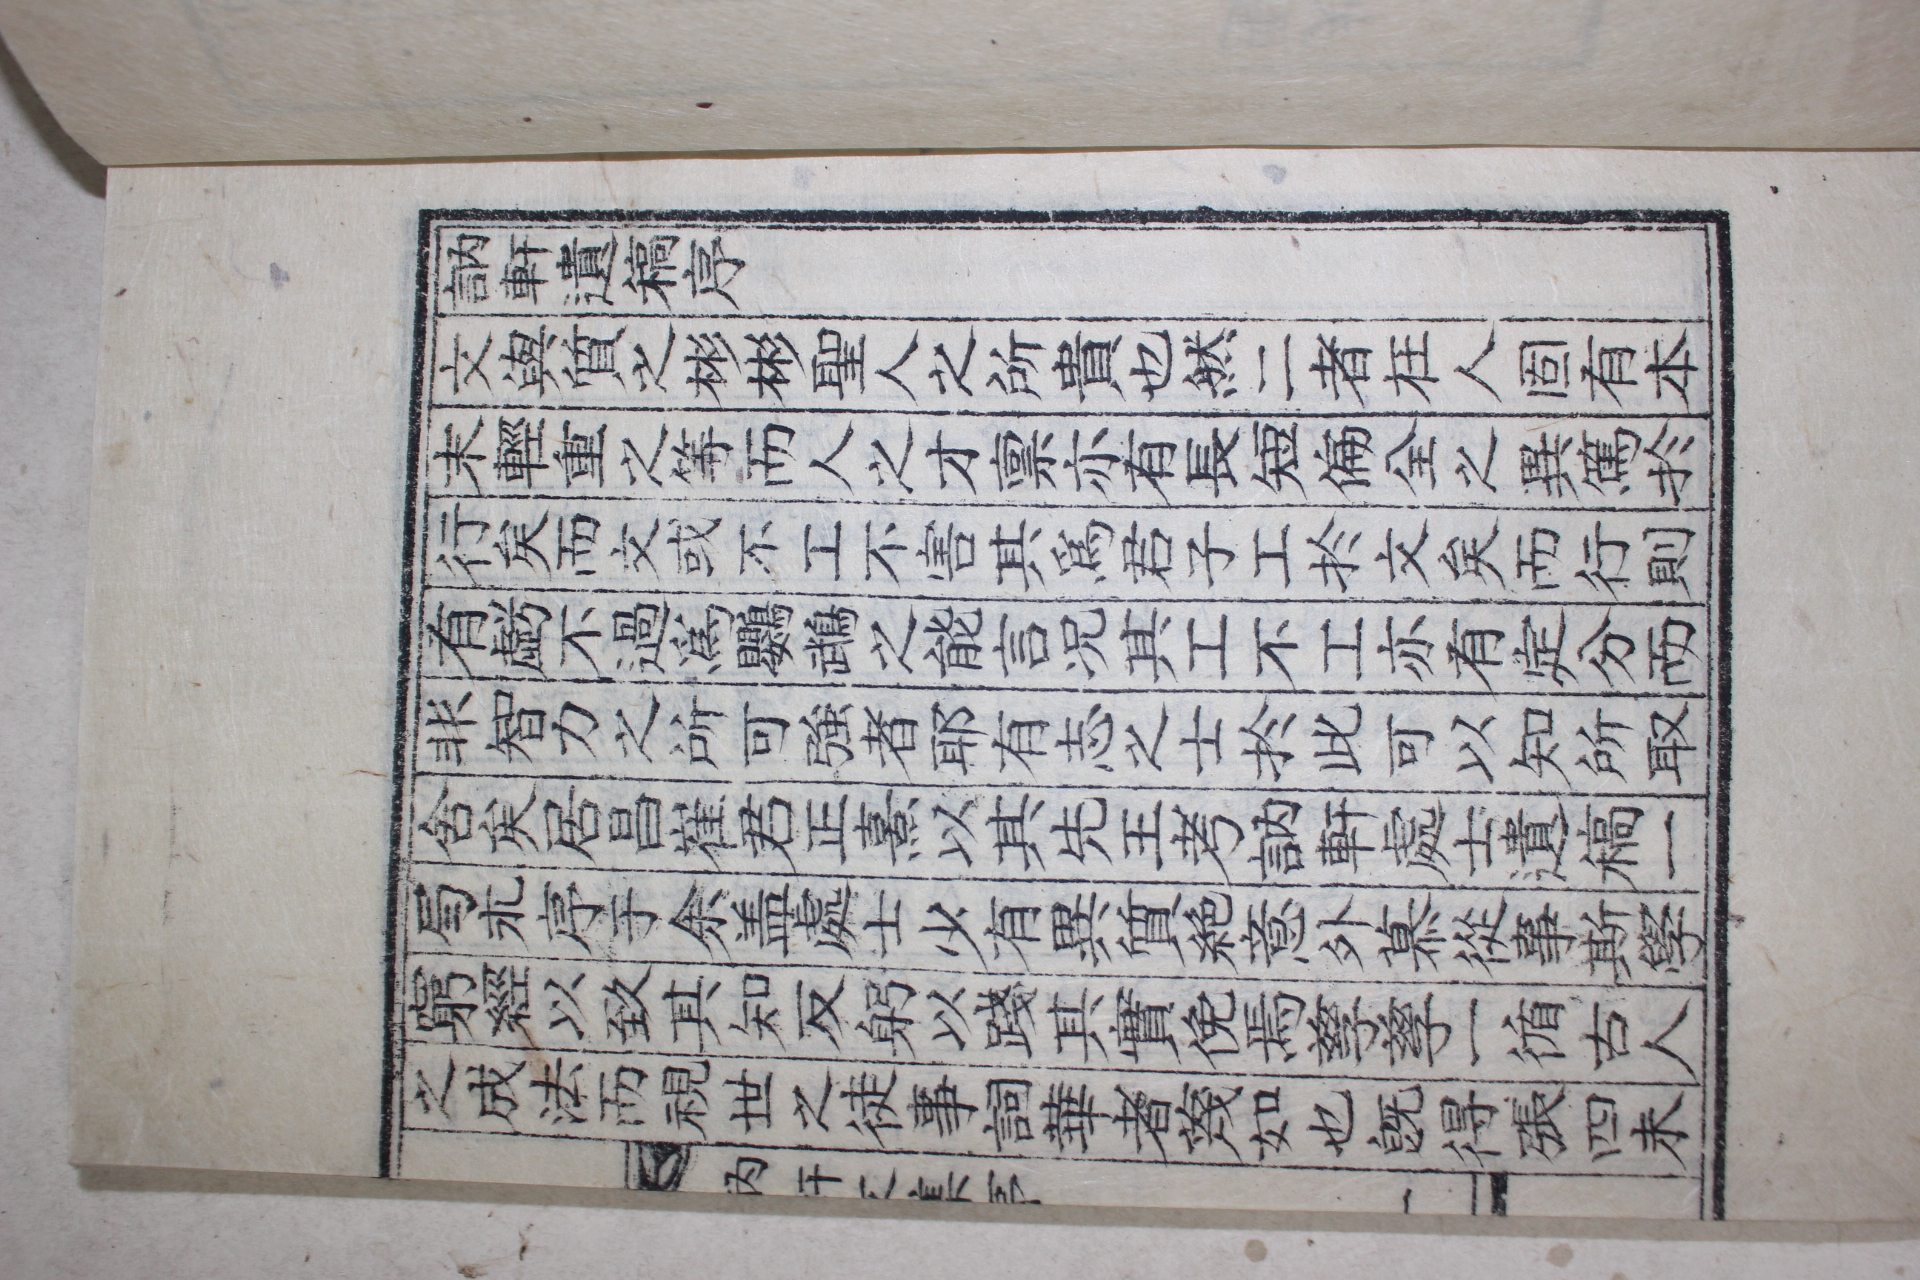 訥軒遺稿序
文與質之彬彬聖人之所貴也然二者在人固有本
末輕重之等而人之才禀亦有長短偏全之異篤於
行矣而文或不工不害其爲君子工於文矣而行則
有虧不過爲鸚鵡之能言况其工不工亦有定分而
非智力之所可強者耶有志之士於此可以知所取
舍矣居昌崔君正熹以其先王考訥軒處士遺稿一
局求序于余盖處士少有異質絶意外慕從事斯學
窮經以致其知反躬以踐其實俛焉孳孳一循古人
之成法而視世之徒事詞華者蔑如也旣得張四未
訥軒文集序
一